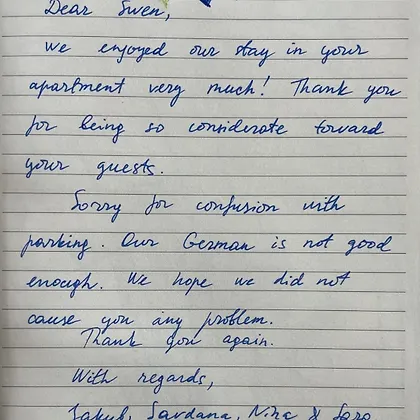 Dear Swen,
We enjoyed our stay in your
apartment very much! Thank you
for being so considerate toward
your guests.
Sorry for confusion with
parking. Our German is not good
enough. We hope we did not
cause you any problem.
Thank you again.
With regards,
Jakub, Sardana, Nika &